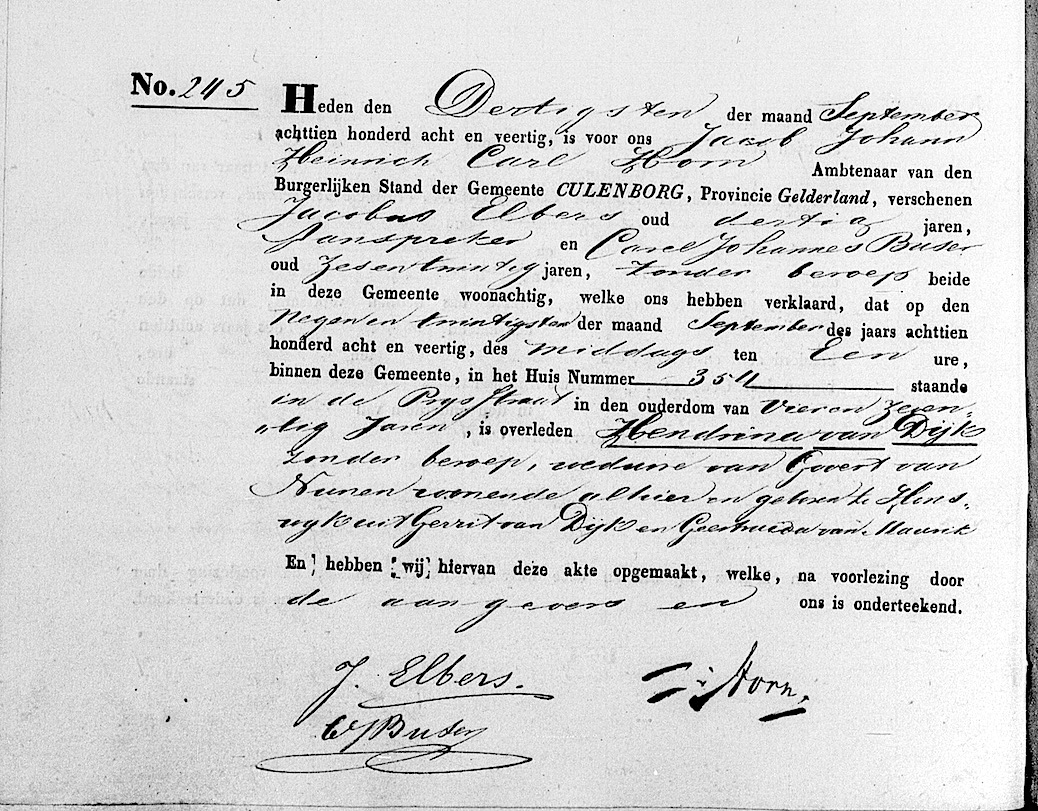 No. 245
Heden den Dertigsten der maand September
achttien honderd acht en veertig, is voor ons Jacob Johann
Heinrich Carl Horn Ambtenaar van den
Burgerlijken Stand der Gemeente CULENBORG, Provincie Gelderland, verschenen
Jacobus Elbers oud dertig jaren,
Aanspreker en Carel Johannes Buser
oud Zesentwintig jaren, zonder beroep beide
in deze Gemeente woonachtig, welke ons hebben verklaard, dat op den
Negenentwintigsten der maand September des jaars achttien
honderd acht en veertig, des middags ten Een ure,
binnen deze Gemeente, in het Huis Nummer 354 staande
in de Prysstraat in den ouderdom van Vieren zeven-
tig Jaren, is overleden Hendrina van Dijk
zonder beroep, weduwe van Govert van
Nunen wonende alhier en geboren te Hons-
wyk uit Gerrit van Dijk en Geertruida van Maurik
En hebben wij hiervan deze akte opgemaakt, welke, na voorlezing door
de aangevers en ons is onderteekend.
J. Elbers.
Horn.
CJ Buser